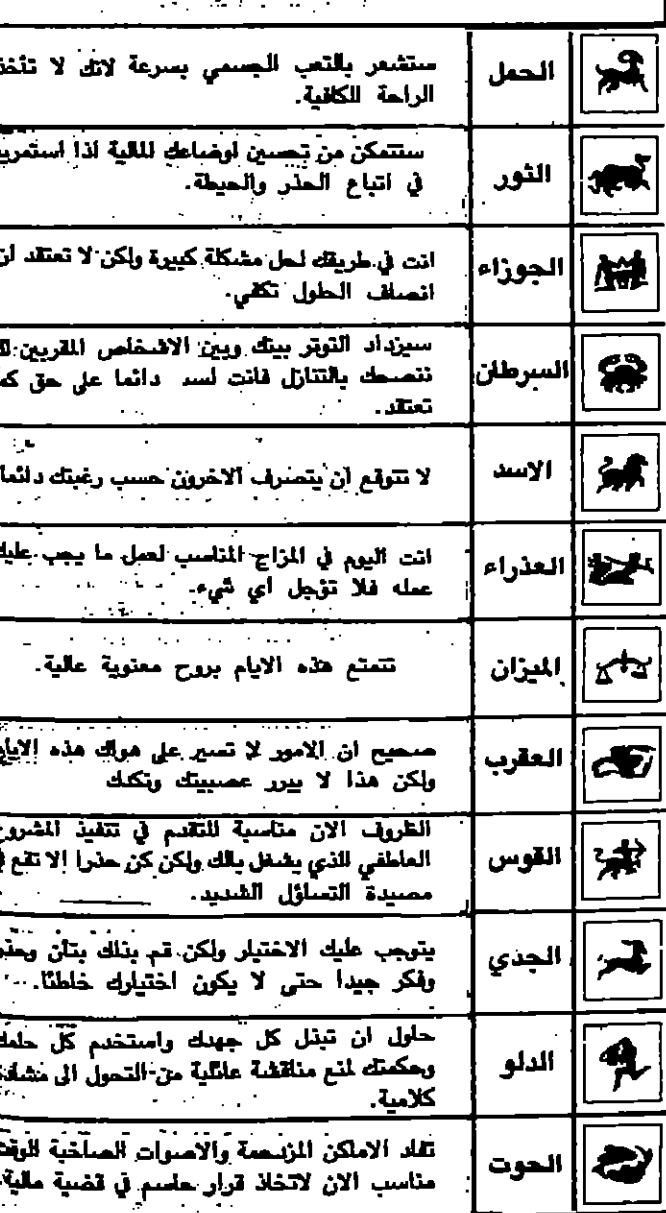 الحمل
ستشعر بالتعب الجسمي بسرعة لانك لا تأخذ
الراحة الكافية.
الثور
ستتمكن من تحسين اوضاعك المالية اذا استمريت
في اتباع الحذر والحيطة.
الجوزاء
انت في طريقك لحل مشكلة كبيرة ولكن لا تعتقد ان
انصاف الحلول تكفي.
السرطان
سيزداد التوتر بينك وبين الاشخاص المقربين
ننصحك بالتنازل فانت لست دائما على حق كما
تعتقد.
الاسد
لا تتوقع أن يتصرف الاخرون حسب رغبتك دائما
العذراء
انت اليوم في المزاج المناسب لعمل ما يجب عليك
عمله فلا تؤجل أي شيء.
الميزان
تتمتع هذه الايام بروح معنوية عالية.
العقرب
صحيح ان الامور لا تسير على هواك هذه الايام
ولكن هذا لا يبرر عصبيتك ونكدك
القوس
الظروف الان مناسبة للتقدم في تنفيذ المشروع
العاطفي الذي يشغل بالك ولكن كن حذرا الا تقع في
مصيدة التساؤل الشديد.
الجدي
يتوجب عليك الاختيار ولكن قم بذلك بتأن وحذر
وفكر جيدا حتى لا يكون اختيارك خاطئا.
الدلو
حاول ان تبذل كل جهدك واستخدم كل حلمك
وحكمتك لمنع مناقشة عائلية من التحول الى مشادة
كلامية.
الحوت
الاماكن المزدحمة والاصوات الصاخبة الوقت
مناسب الان لاتخاذ قرار حاسم في قضية مالية.